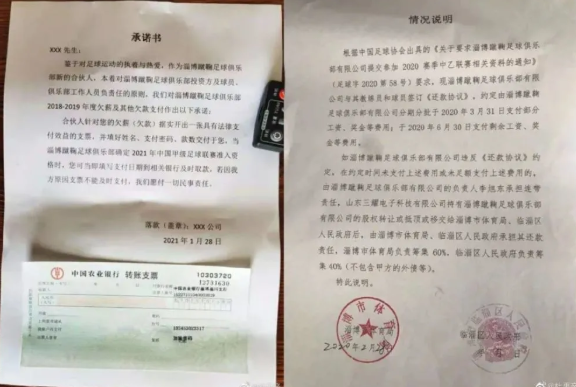 承诺书
XXX 先生：
鉴于对足球运动的执着与热爱，作为淄博蹴鞠足球俱乐
部新的合伙人，本着对淄博蹴鞠足球俱乐部投资方及球员、
俱乐部工作人员负责任的原则，我们对淄博蹴鞠足球俱乐部
2018-2019 年度欠薪及其他欠款支付作出以下承诺：
合伙人针对您的欠薪（欠款）据实开出一张具有法律支
付效益的支票，并填好姓名、支付密码、款数交付于您，当
淄博蹴鞠足球俱乐部确定 2021 年中国甲级足球联赛准入资
格时，您可当即填写支付日期到相关银行及时取款，若因我
方原因支票不能及时支付，我们愿付一切民事责任。
落款（盖章）：XXX 公司
2021 年 1 月 28 日
中国农业银行 转账支票
10303720
12731630
情况说明
根据中国足球协会出具的《关于要求淄博蹴鞠足球俱乐
部有限公司提交参加 2020 赛季中乙联赛相关资料的通知》
（足球字 2020 第 58 号）要求，现淄博蹴鞠足球俱乐部有限
公司与其教练员和球员签订《还款协议》，约定由淄博蹴鞠
足球俱乐部有限公司分期分批于 2020 年 3 月 31 日支付部分
工资、奖金等费用；于 2020 年 6 月 30 日支付剩余工资、奖
金等费用。
如淄博蹴鞠足球俱乐部有限公司违反《还款协议》约
定，在约定时间未支付上述费用或未足额支付上述费用的，
由淄博蹴鞠足球俱乐部有限公司的负责人李旭东承担连带
责任。山东三耀电子科技有限公司持有淄博蹴鞠足球俱乐部
有限公司的股权转让或抵顶或移交给淄博市体育局、临淄区
人民政府后，由淄博市体育局、临淄区人民政府承担其还款
责任，淄博市体育局负责筹集 60%，临淄区人民政府负责筹
集 40%（不包含甲方的外债等）。
特此说明。
淄博市体育局
临淄区人民政府